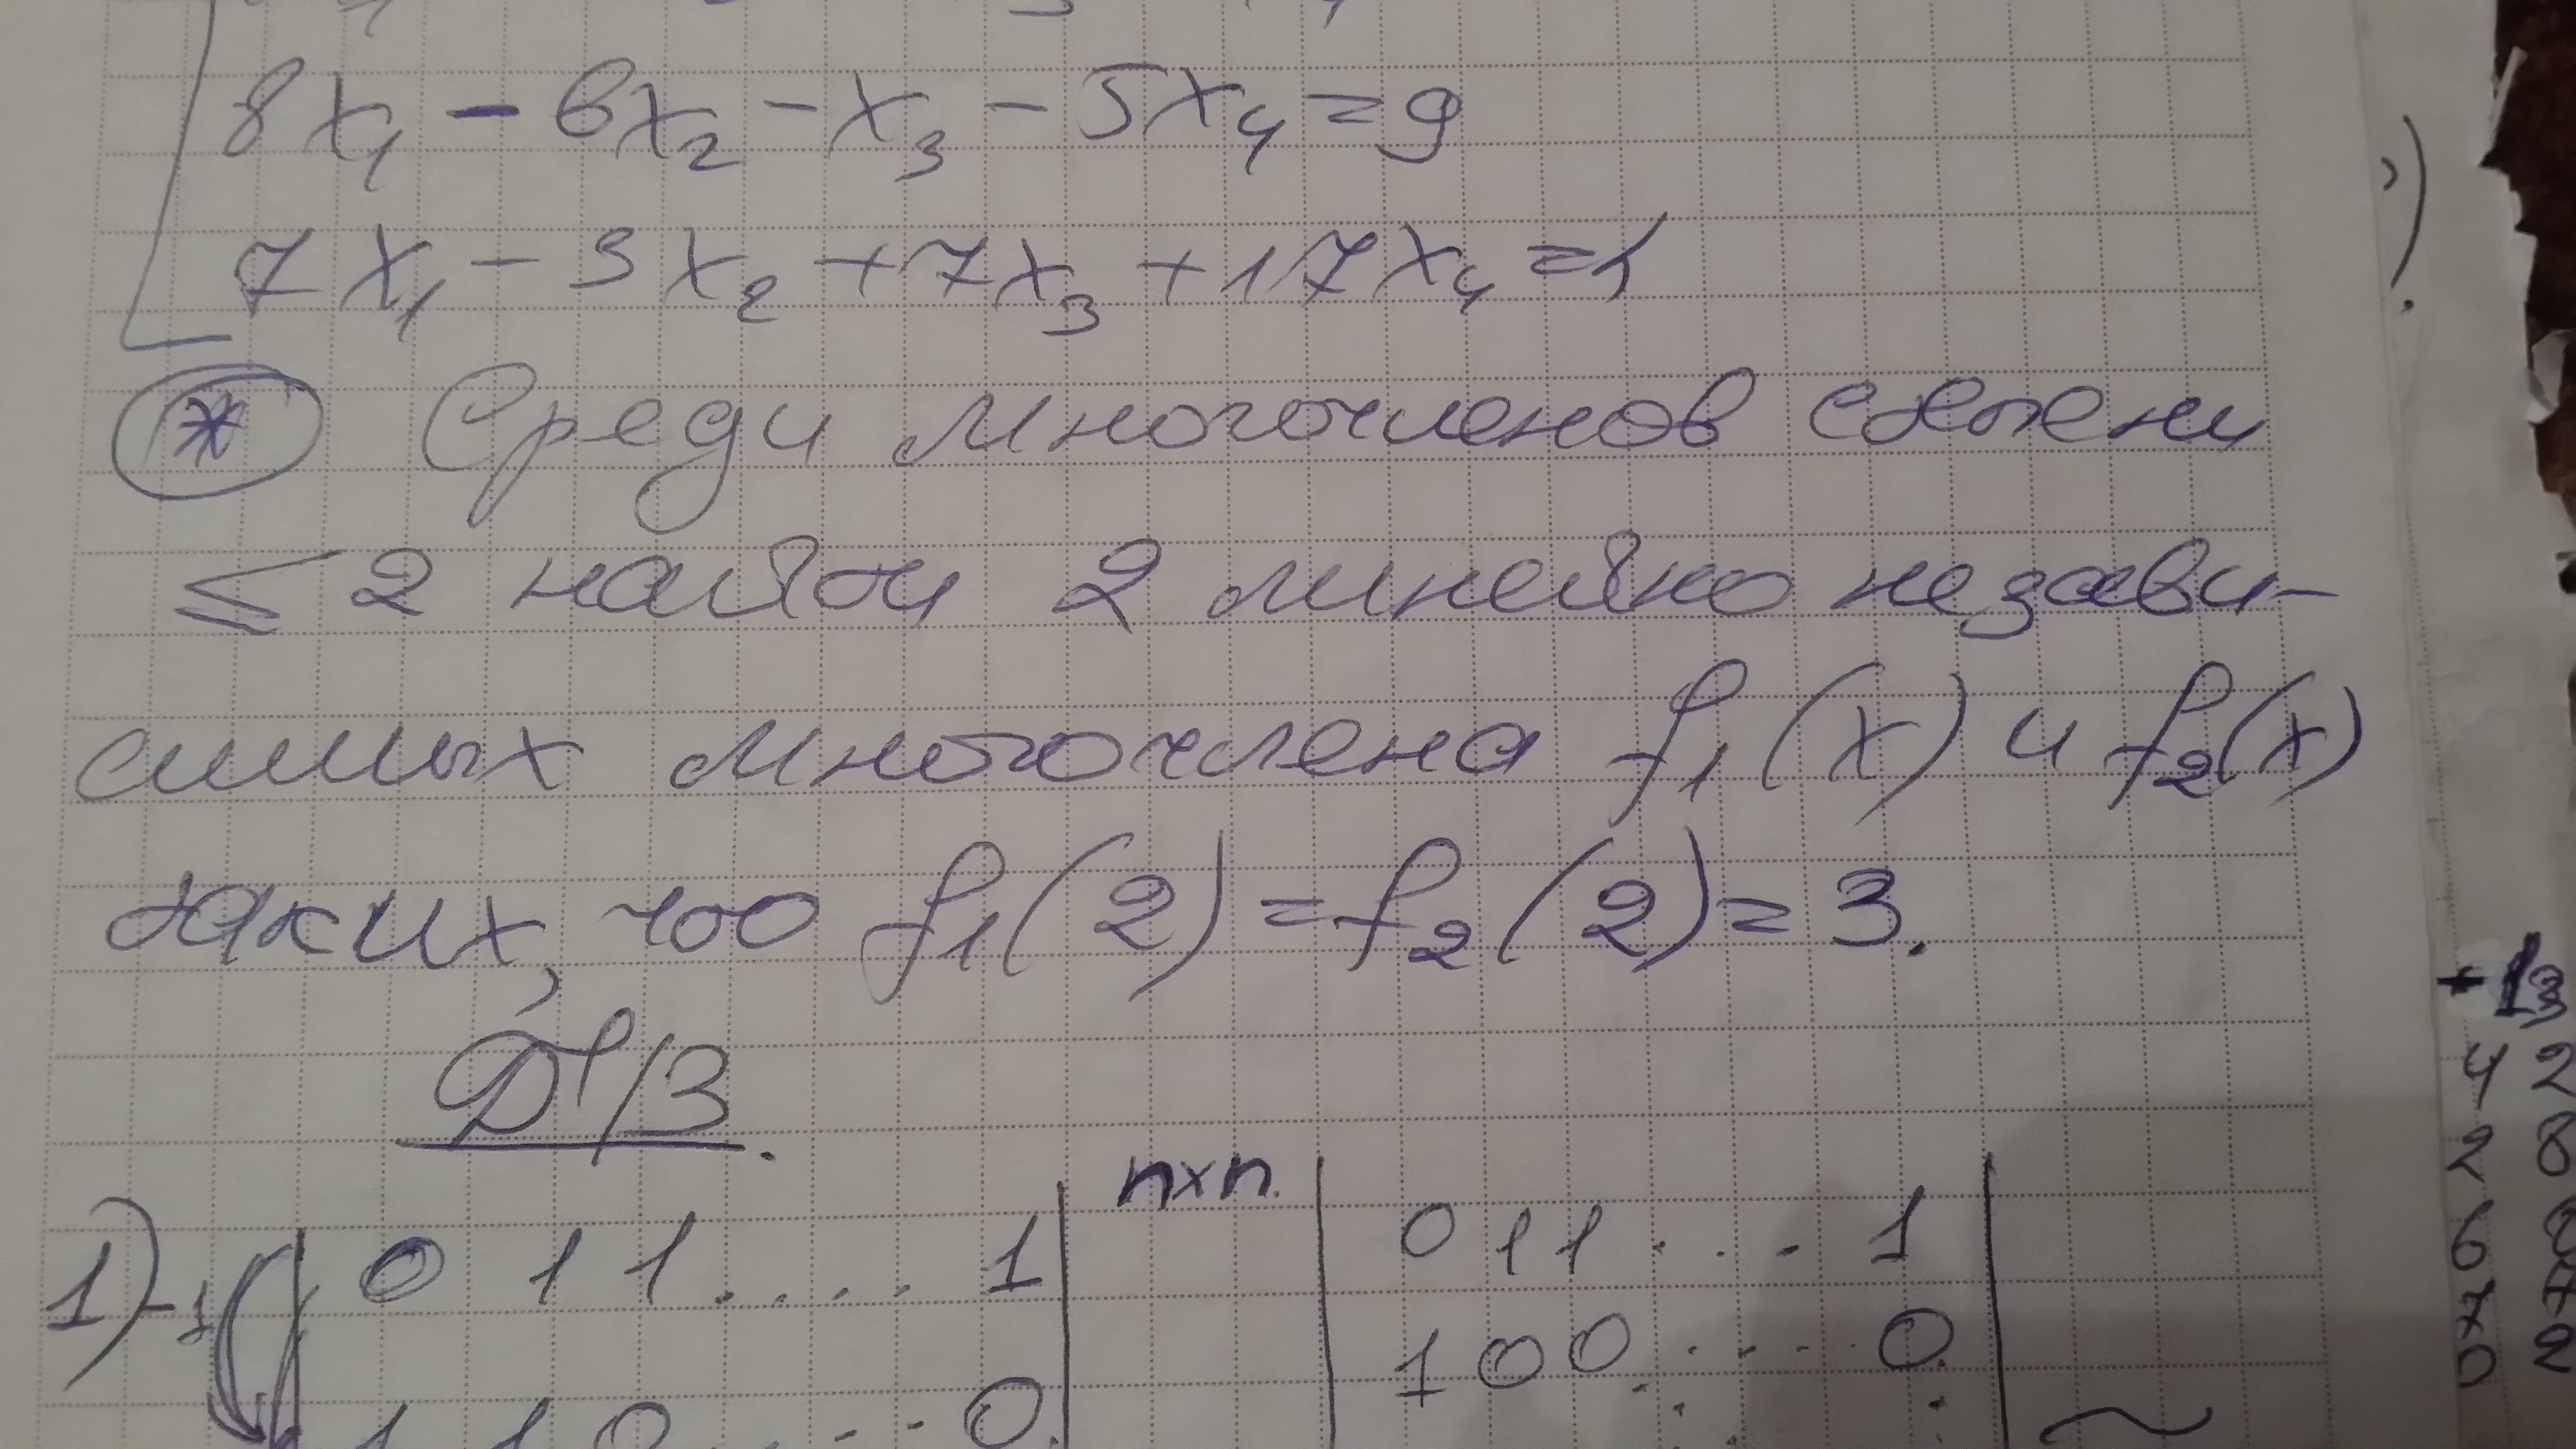 8x₁ - 6x₂ - x₃ - 5x₄ = 9
7x₁ - 3x₂ + 7x₃ + 17x₄ = 1
* Среди многочленов степени
≤ 2 найти 2 линейно незави-
симых многочлена f₁(x) и f₂(x)
таких, что f₁(2) = f₂(2) = 3.
Д/З.
1) -1 | 0 1 1 .... 1 | n×n. | 0 1 1 .... 1 |
1 0 0 .... 0
1 1 0 ... 0
+ 13
4 2
2 8
6
7
0 2